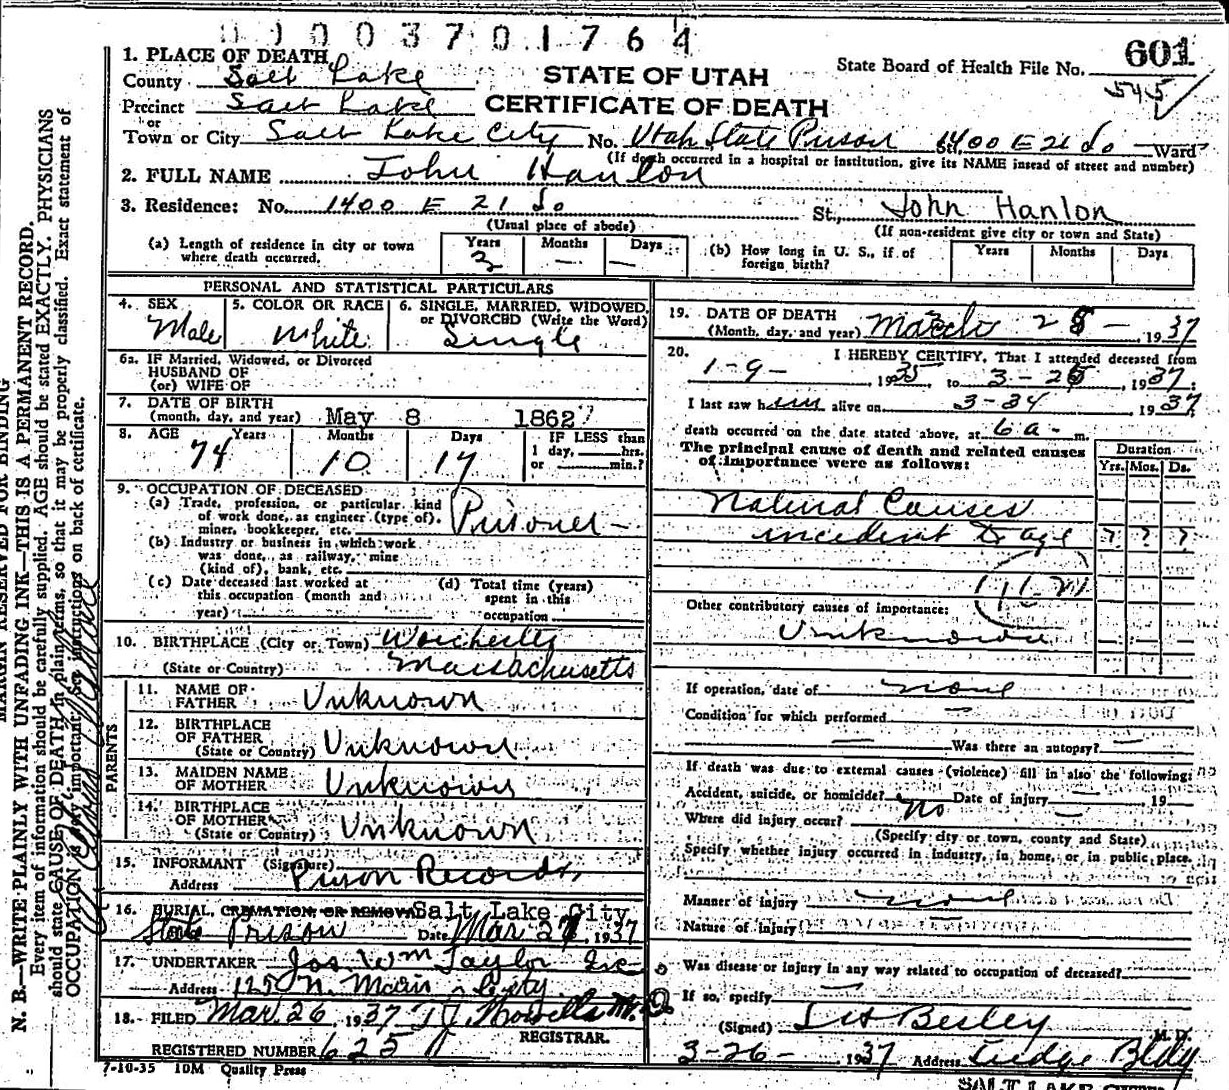 00003701764
601
State Board of Health File No.
545
STATE OF UTAH
CERTIFICATE OF DEATH
1. PLACE OF DEATH
County Salt Lake
Precinct Salt Lake
or
Town or City Salt Lake City No. Utah State Prison 1400 E 21 So Ward
(If death occurred in a hospital or institution, give its NAME insead of street and number)
2. FULL NAME John Hanlon
3. Residence: No. 1400 E 21 So St., John Hanlon
(Usual place of abode) (If non-resident give city or town and State)
(a) Length of residence in city or town where death occurred. Years 2 Months — Days —
(b) How long in U. S., if of foreign birth? Years Months Days
PERSONAL AND STATISTICAL PARTICULARS
4. SEX Male
5. COLOR OR RACE White
6. SINGLE, MARRIED, WIDOWED, or DIVORCED (Write the Word) Single
6a. IF Married, Widowed, or Divorced
HUSBAND OF
(or) WIFE OF
7. DATE OF BIRTH
(month, day, and year) May 8 1862
8. AGE Years 74 Months 10 Days 17
IF LESS than
1 day, hrs.
or min.?
9. OCCUPATION OF DECEASED
(a) Trade, profession, or particular kind
of work done, as engineer (type of),
miner, bookkeeper, etc. Prisoner —
(b) Industry or business in which work
was done, as railway, mine
(kind of), bank, etc.
(c) Date deceased last worked at
this occupation (month and
year)
(d) Total time (years)
spent in this
occupation
10. BIRTHPLACE (City or Town) Worchester
(State or Country) Massachusetts
PARENTS
11. NAME OF
FATHER Unknown
12. BIRTHPLACE
OF FATHER
(State or Country) Unknown
13. MAIDEN NAME
OF MOTHER Unknown
14. BIRTHPLACE
OF MOTHER
(State or Country) Unknown
15. INFORMANT (Signature) Prison Records
Address
16. BURIAL, CREMATION, OR REMOVAL Salt Lake City
State Prison Date Mar 27, 1937
17. UNDERTAKER Jos Wm Taylor Inc
Address 125 N. Main City
18. FILED Mar. 26 1937
REGISTRAR.
REGISTERED NUMBER 625
7-10-35 10M Quality Press
19. DATE OF DEATH
(Month, day, and year) March 25 — , 1937
20. I HEREBY CERTIFY, That I attended deceased from
1-9- , 1935, to 3-25 , 1937;
I last saw him alive on 3-24 , 1937
death occurred on the date stated above, at 6 a- m.
The principal cause of death and related causes
of importance were as follows:
Duration
Yrs. Mos. Ds.
Natural Causes
incedent to age ? ? ?
Other contributory causes of importance:
Unknown
If operation, date of none
Condition for which performed —
— Was there an autopsy? —
If death was due to external causes (violence) fill in also the following:
Accident, suicide, or homicide? No Date of injury — 19
Where did injury occur? —
(Specify city or town, county and State)
Specify whether injury occurred in industry, in home, or in public place.
Manner of injury none
Nature of injury
Was disease or injury in any way related to occupation of deceased?
If so, specify —
(Signed) Besley M.D.
3-26- 1937 Address Judge Bldg
SALT LAKE
MARGIN RESERVED FOR BINDING
N. B.—WRITE PLAINLY WITH UNFADING INK—THIS IS A PERMANENT RECORD.
Every item of information should be carefully supplied. AGE should be stated EXACTLY. PHYSICIANS
should state CAUSE OF DEATH in plain terms, so that it may be properly classified. Exact statement of
OCCUPATION is very important. See instructions on back of certificate.